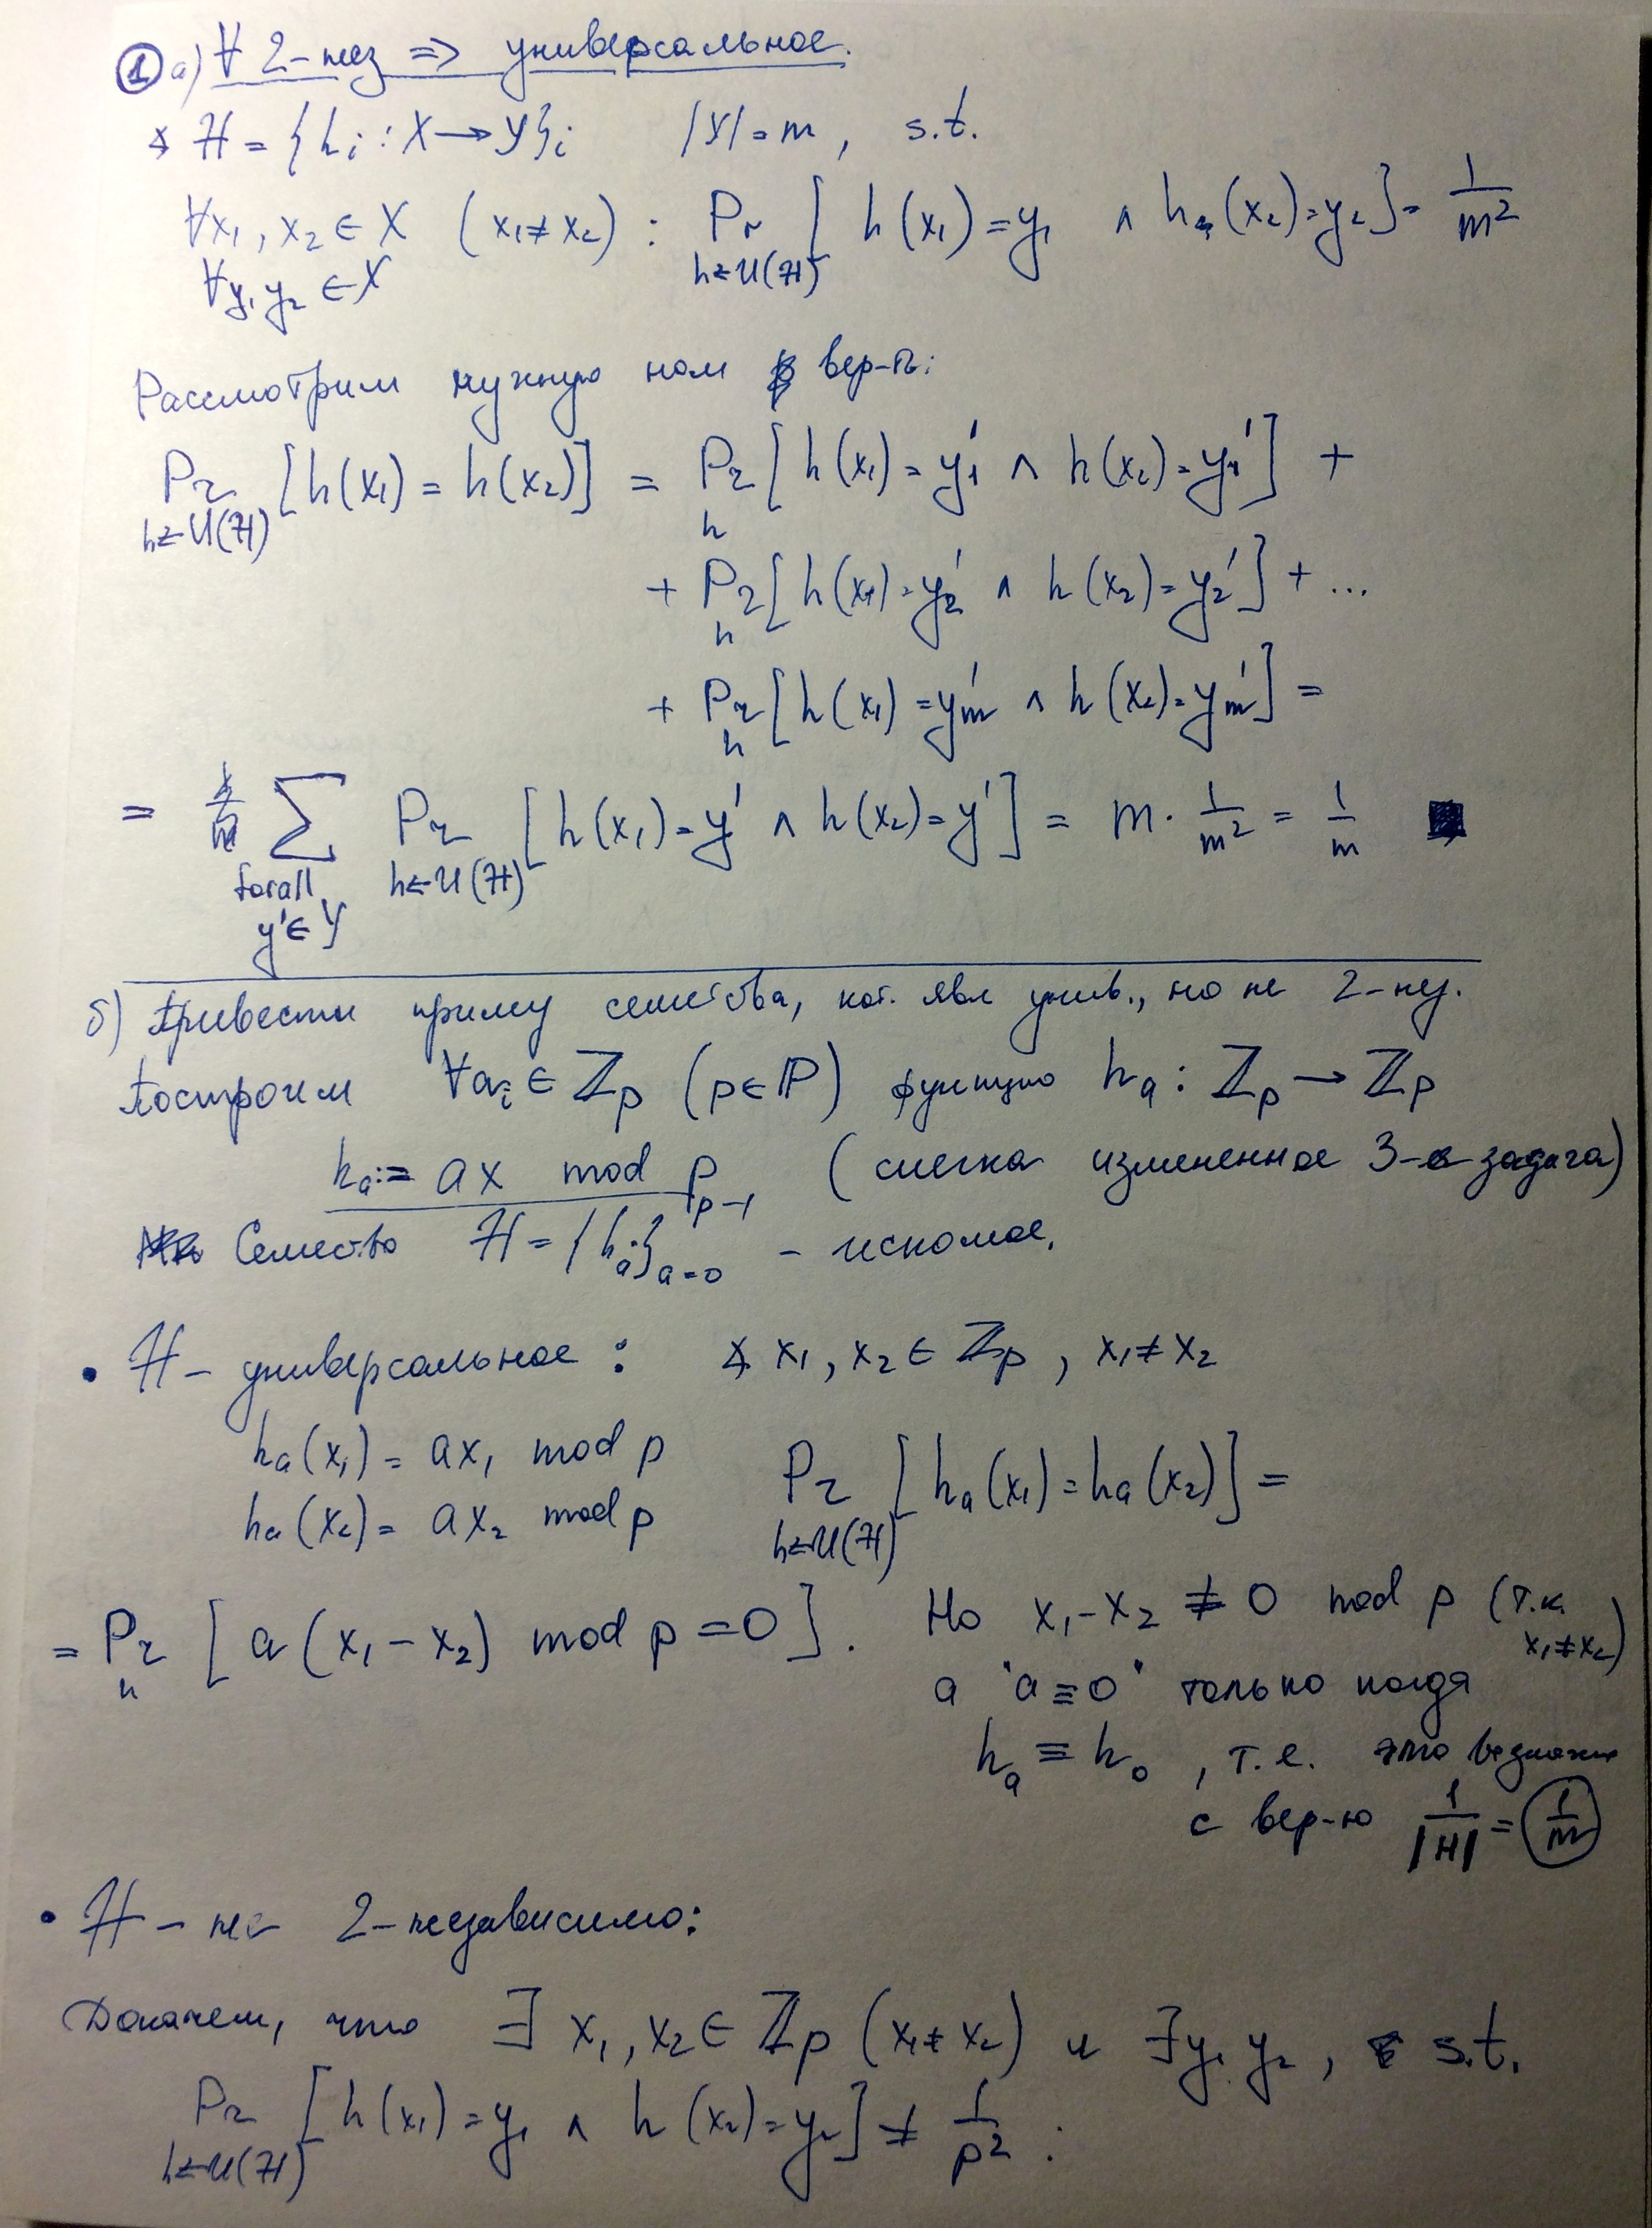 ① а) ∀ 2-нез ⇒ универсальное.
∢ H = {hᵢ : X → Y}ᵢ |Y| = m , s.t.
∀x₁, x₂ ∈ X (x₁ ≠ x₂) : Pr [ h(x₁) = y₁ ∧ h(x₂) = y₂ ] = 1/m²
∀y₁ y₂ ∈ X h ← U(H)
Рассмотрим нужную нам вер-ть:
Pr [h(x₁) = h(x₂)] = Pr [h(x₁) = y₁' ∧ h(x₂) = y₁'] +
h ← U(H) h
+ Pr [h(x₁) = y₂' ∧ h(x₂) = y₂'] + ...
h
+ Pr [h(x₁) = yₘ' ∧ h(x₂) = yₘ'] =
h
= ∑ Pr [h(x₁) = y' ∧ h(x₂) = y'] = m · 1/m² = 1/m ■
forall h ← U(H)
y' ∈ Y
б) Привести пример семейства, кот. явл унив., но не 2-нез.
Построим ∀aᵢ ∈ ℤp (p ∈ ℙ) функцию hₐ : ℤp → ℤp
hₐ := ax mod p (слегка измененное 3-я задача)
Семейство H = {hₐ}ₐ₌₀ᵖ⁻¹ - искомое.
• H - универсальное : ∢ x₁, x₂ ∈ ℤp , x₁ ≠ x₂
hₐ(x₁) = ax₁ mod p
hₐ(x₂) = ax₂ mod p Pr [hₐ(x₁) = hₐ(x₂)] =
h ← U(H)
= Pr [a(x₁ - x₂) mod p = 0]. Но x₁ - x₂ ≢ 0 mod p (т.к. x₁ ≠ x₂)
h
а "a ≡ 0" только когда
hₐ ≡ h₀ , т.е. это
с вер-ю 1/|H| = 1/m
• H - не 2-независимо:
Докажем, что ∃ x₁, x₂ ∈ ℤp (x₁ ≠ x₂) и ∃ y₁ y₂ , s.t.
Pr [h(x₁) = y₁ ∧ h(x₂) = y₂] ≠ 1/p² :
h ← U(H)